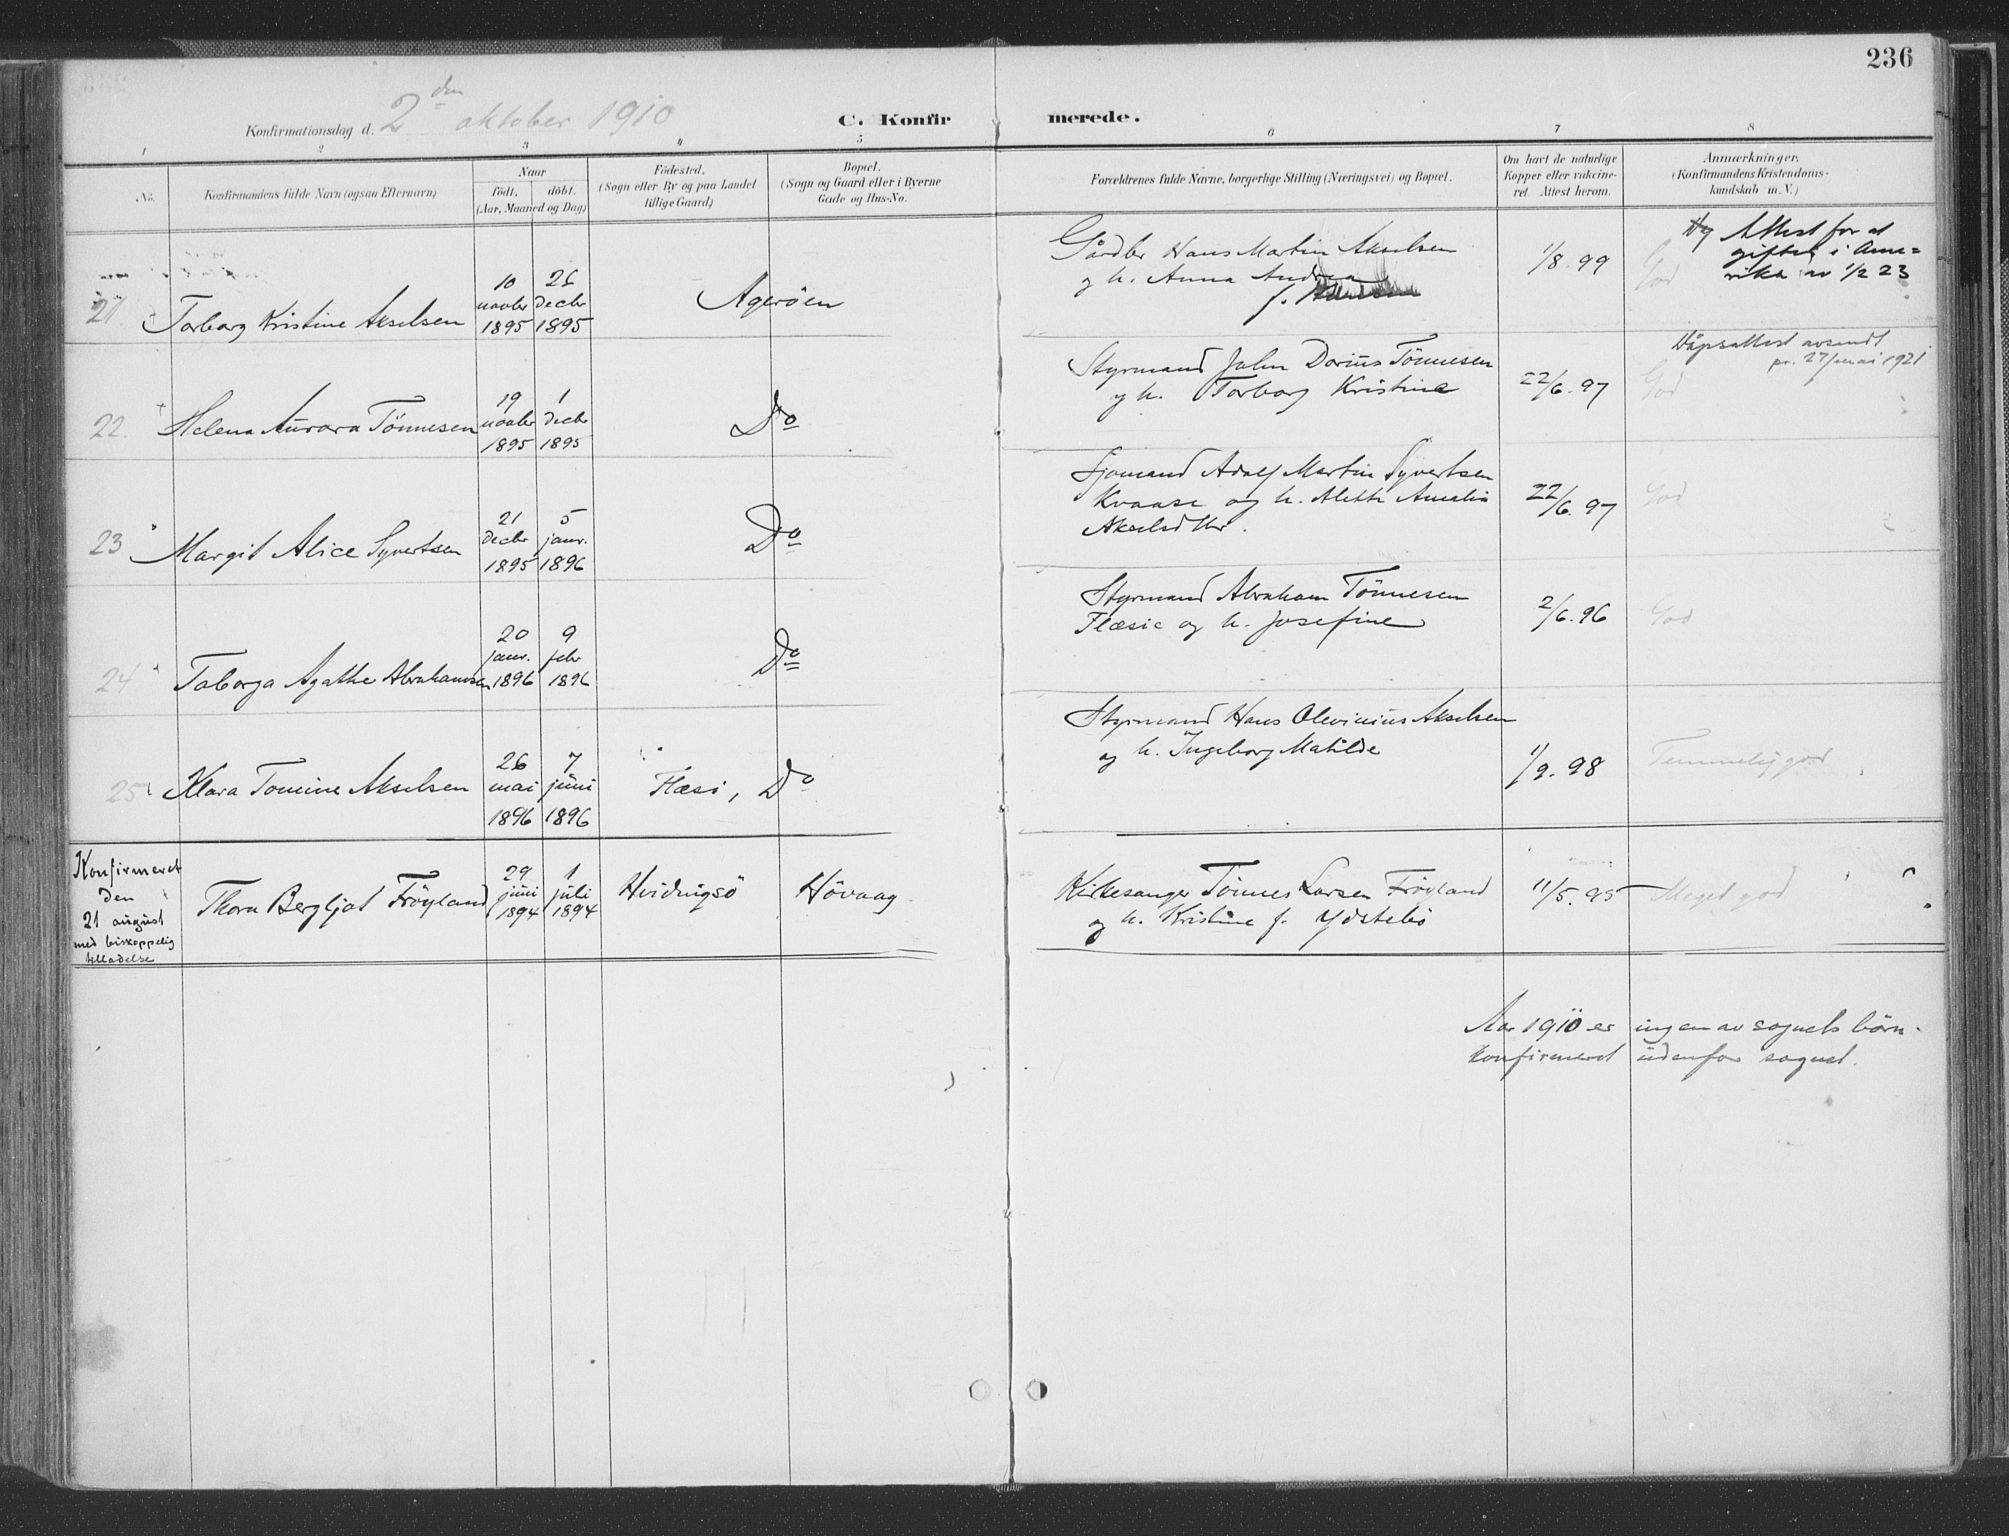 236
Konfirmationsdag d. 2den oktober 1910
C. Konfirmerede.
1 2 3 4 5 6 7 8
No.
Konfirmandens fulde Navn (ogsaa Efternavn)
Naar
födt. döbt.
(Aar, Maaned og Dag)
Födested.
(Sogn eller By og paa Landet
tillige Gaard)
Bopæl.
(Sogn og Gaard eller i Byerne
Gade og Hus-No.
Forældrenes fulde Navne, borgerlige Stilling (Næringsvei) og Bopæl.
Om havt de naturlige
Kopper eller vaccine-
ret Attest herom.
Anmærkninger.
(Konfirmandens Kristendoms-
kundskab m. V.)
21. Torborg Kristine Akselsen
10 novbr 1895
26 decbr 1895
Agerøen
Gårdbr Hans Martin Akselsen
og h. Anna Andrea
f.
1/8. 99
God
Attest for at
giftes i Ame-
rika av 1/2 23
22. Helena Aurora Tönnesen
19 novbr 1895
1 decbr 1895
Do
Styrmand John Dorius Tönnesen
og h. Torborg Kristine
22/6. 97
God
Dåpsattest avsendt
pr. 27/mai 1921
23 Margit Alice Syvertsen
21 decbr 1895
5 janr. 1896
Do
Sjömand Adolf Martin Syvertsen
Kvaase og h. Alette Amalia
Akselsdtr.
22/6. 97
God
24 Taborga Agathe Abrahamsen
20 janr. 1896
9 febr 1896
Do
Styrmand Abraham Tönnesen
Flæsie og h. Josefine
2/6. 96
God
25 Klara Tomine Akselsen
26 mai 1896
7 juni 1896
Flæsi, Do
Styrmand Hans Olevinius Akselsen
og h. Ingeborg Matilde
1/9. 98
Temmelig god
Konfirmeret
den
21 august
med biskoppelig
tilladelse
Thora Bergljot Fröyland
29 juni 1894
1 juli 1894
Hvidingsö
Hövaag
Kirkesanger Tönnes Larsen Fröyland
og h. Kristine f. Ydstebö
11/5. 95
Meget god
Aar 1910 er ingen av sognets börn
konfirmeret udenfor sognet.